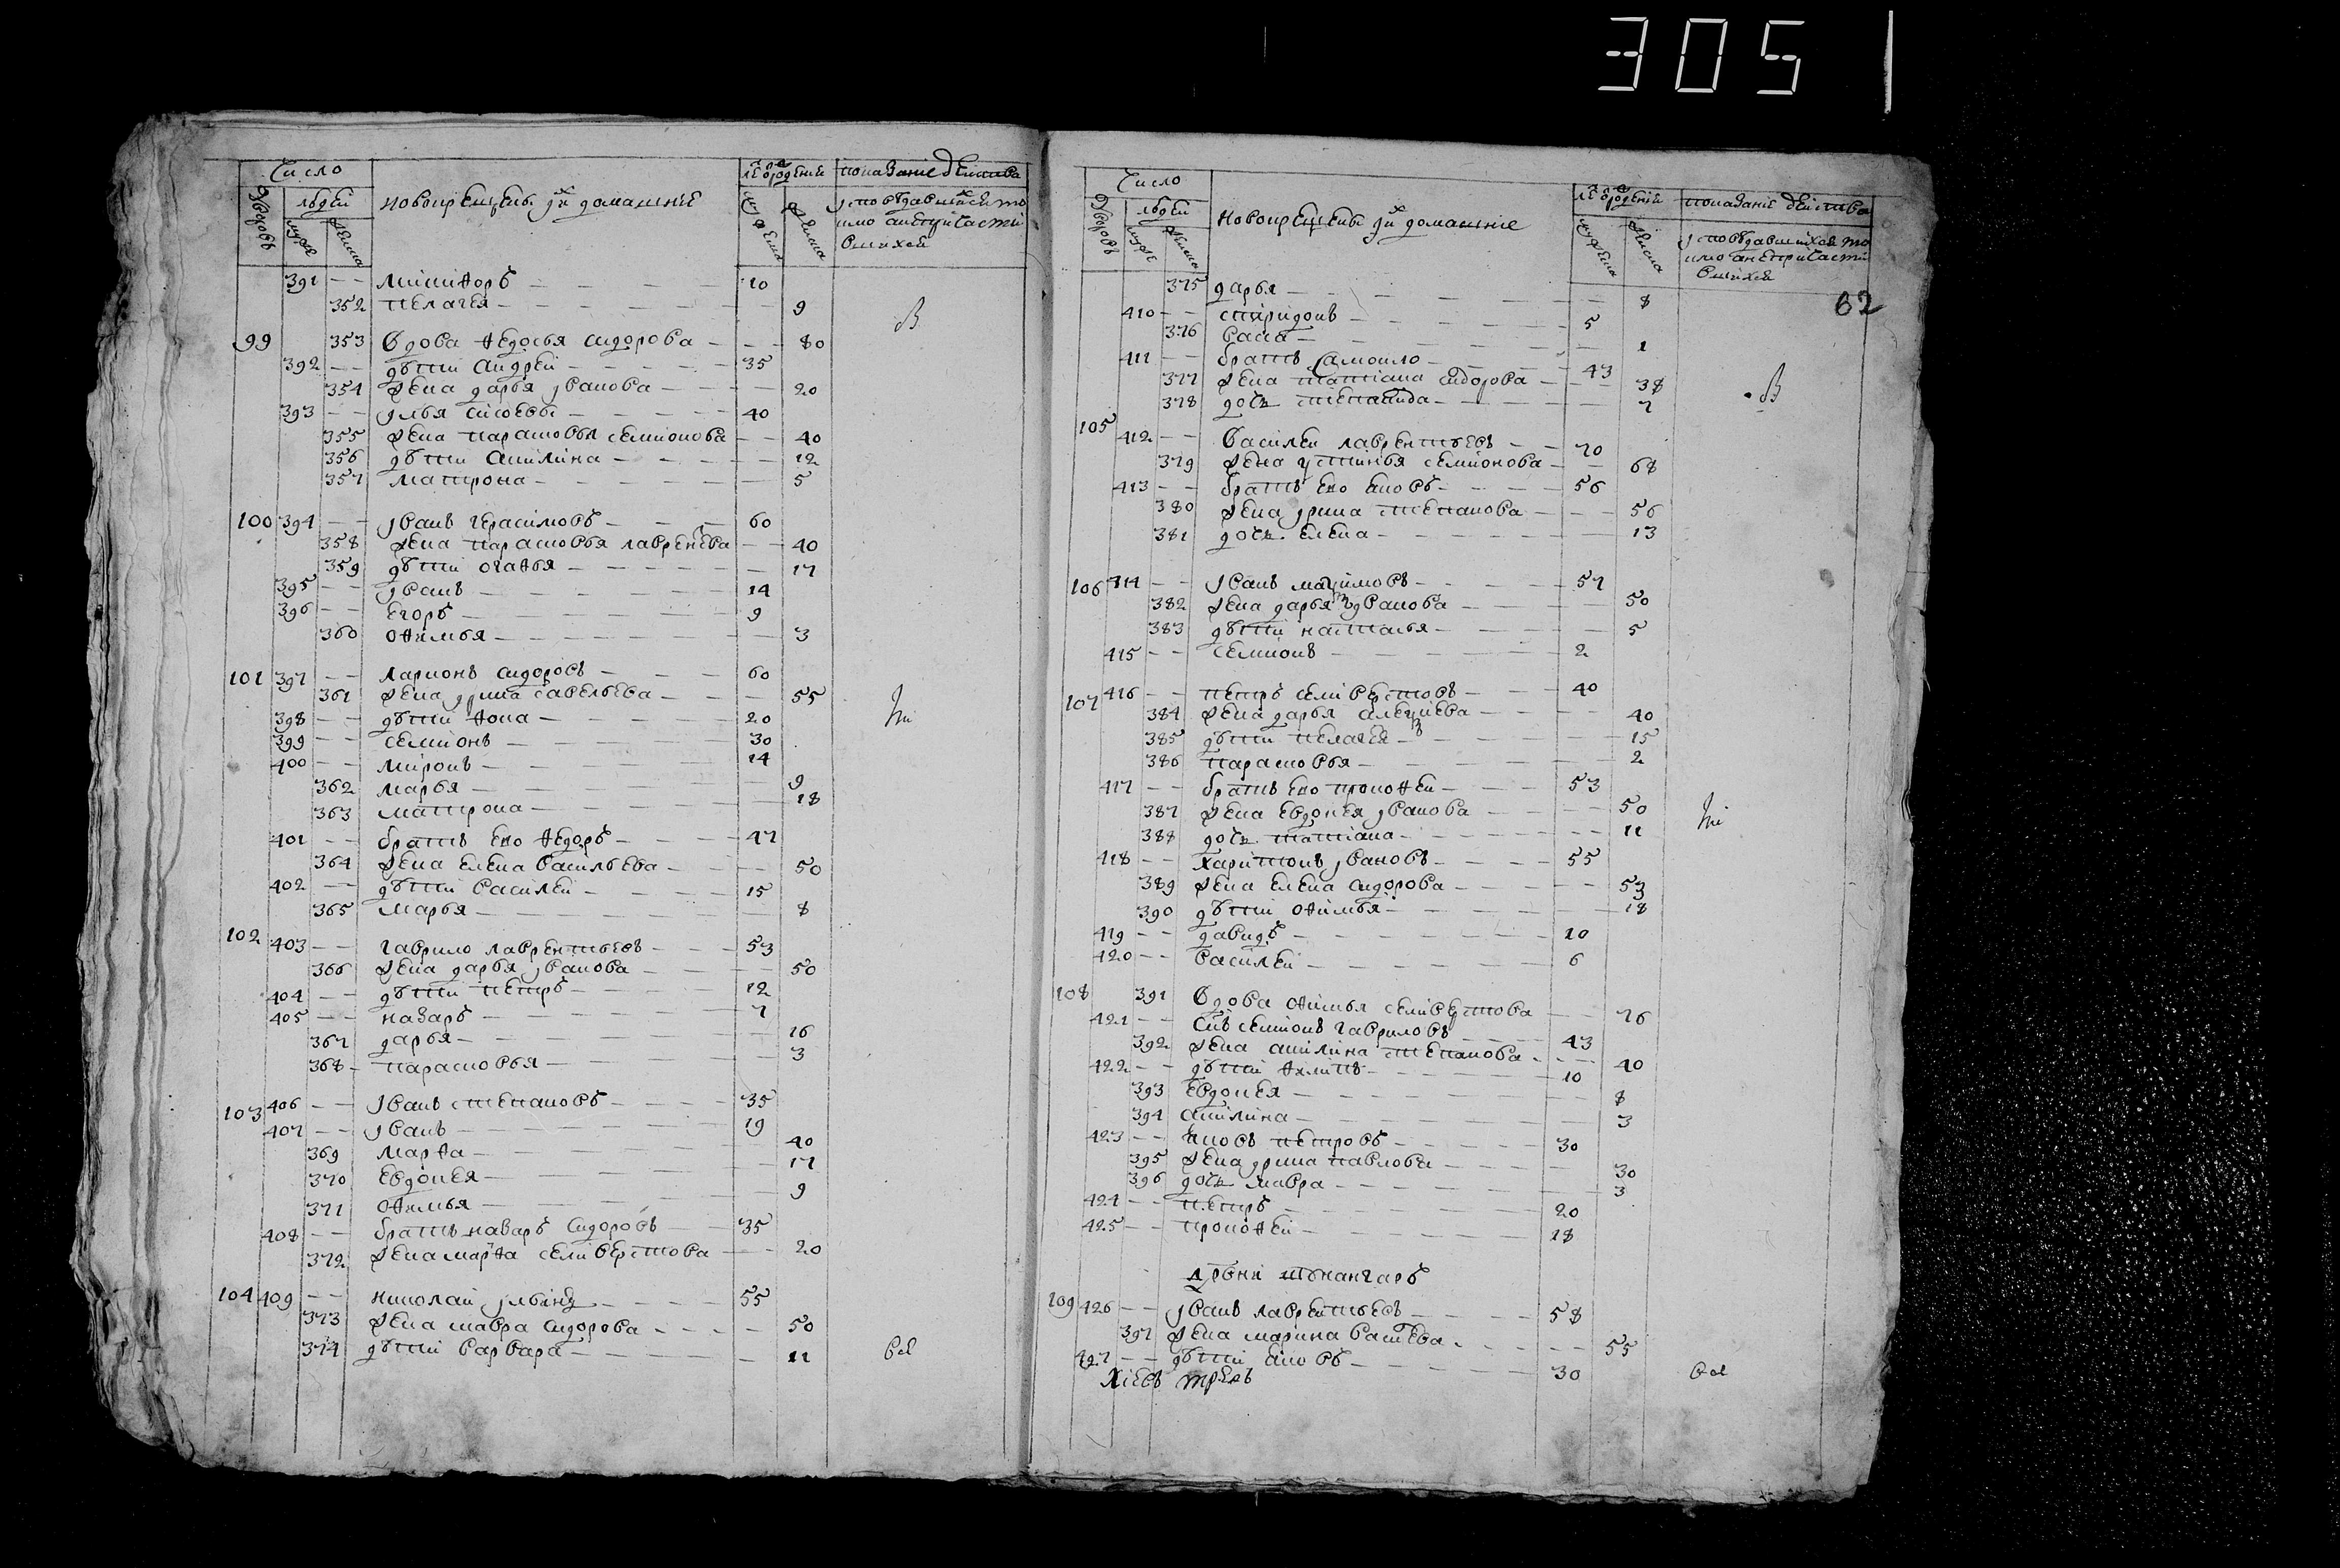 3051
Число
лѣтъ от рожденiя
показанiе действа
Дворовъ
людей
новокрещены и ихъ домашнiе
мужеска
женска
исповедавшихся токмо а не причастившихся
мужеска
женска
391 — — Никифоръ — 10
352 Пелагея — 9
в
99 353 вдова Федосья Сидорова — 80
392 — — дѣти Андрей — 35
354 жена дарья Иванова — 20
393 — — Илья Сысоевы — 40
355 жена парасковья семионова — 40
356 дѣти Акилина — 12
357 матрона — 5
100 394 — — Иванъ герасимовъ — 60
358 жена парасковья лавренева — 40
359 дѣти огафья — 17
395 — — Иванъ — 14
396 — — Егоръ — 9
360 офимья — 3
101 397 — — ларионъ сидоровъ — 60
361 жена Ирина савельева — 55
398 — — дѣти фока — 20
399 — — семионъ — 30
400 — — миронъ — 14
362 марья — 9
363 матрона — 18
401 — — братъ ево федоръ — 47
364 жена елена васильева — 50
402 — — дѣти василей — 15
365 марья — 8
102 403 — — гаврило лаврентьевъ — 53
366 жена дарья Иванова — 50
404 — — дѣти петръ — 12
405 — — назаръ — 7
367 дарья — 16
368 парасковья — 3
103 406 — — Иванъ степановъ — 35
407 — — Иванъ — 19
369 марфа — 40
370 евдокея — 17
371 офимья — 9
408 — — братъ назаръ сидоровъ — 35
372 жена марфа селиверстова — 20
104 409 — — николай ильинъ — 55
373 жена мавра сидорова — 50
374 дѣти варвара — 11
Число
лѣтъ от рожденiя
показанiе действа
Дворовъ
людей
новокрещены и ихъ домашнiе
мужеска
женска
исповедавшихся токмо а не причастившихся
мужеска
женска
62
375 дарья — 8
410 — — спиридонъ — 5
376 васса — 1
411 — — братъ самойло — 43
377 жена татиана сидорова — 38
378 дочь степанида — 7
в
105 412 — — василей лаврентьевъ — 70
379 жена устинья семионова — 68
413 — — братъ ево яковъ — 56
380 жена Ирина степанова — 56
381 дочь елена — 13
106 414 — — Иванъ максимовъ — 57
382 жена дарья Иванова — 50
383 дѣти наталья — 5
415 — — семионъ — 2
107 416 — — петръ селиверстовъ — 40
384 жена дарья алексиева — 40
385 дѣти пелагея — 15
386 парасковья — 2
417 — — братъ ево прокофей — 53
387 жена евдокея Иванова — 50
388 дочь татиана — 11
418 — — харитонъ Ивановъ — 55
389 жена елена сидорова — 53
390 дѣти офимья — 18
419 — — давидъ — 10
420 — — василей — 6
108 391 вдова офимья селиверстова — 76
421 — — снъ семионъ гавриловъ — 43
392 жена акилина степанова — 40
422 — — дѣти филипъ — 10
393 евдокея — 8
394 акилина — 3
423 — — яковъ петровъ — 30
395 жена Ирина павлова — 30
396 дочь мавра — 3
424 — — петръ — 20
425 — — прокофей — 18
109 426 — — Иванъ лаврентьевъ — 58
397 жена марина — 55
427 — — дѣти яковъ — 30